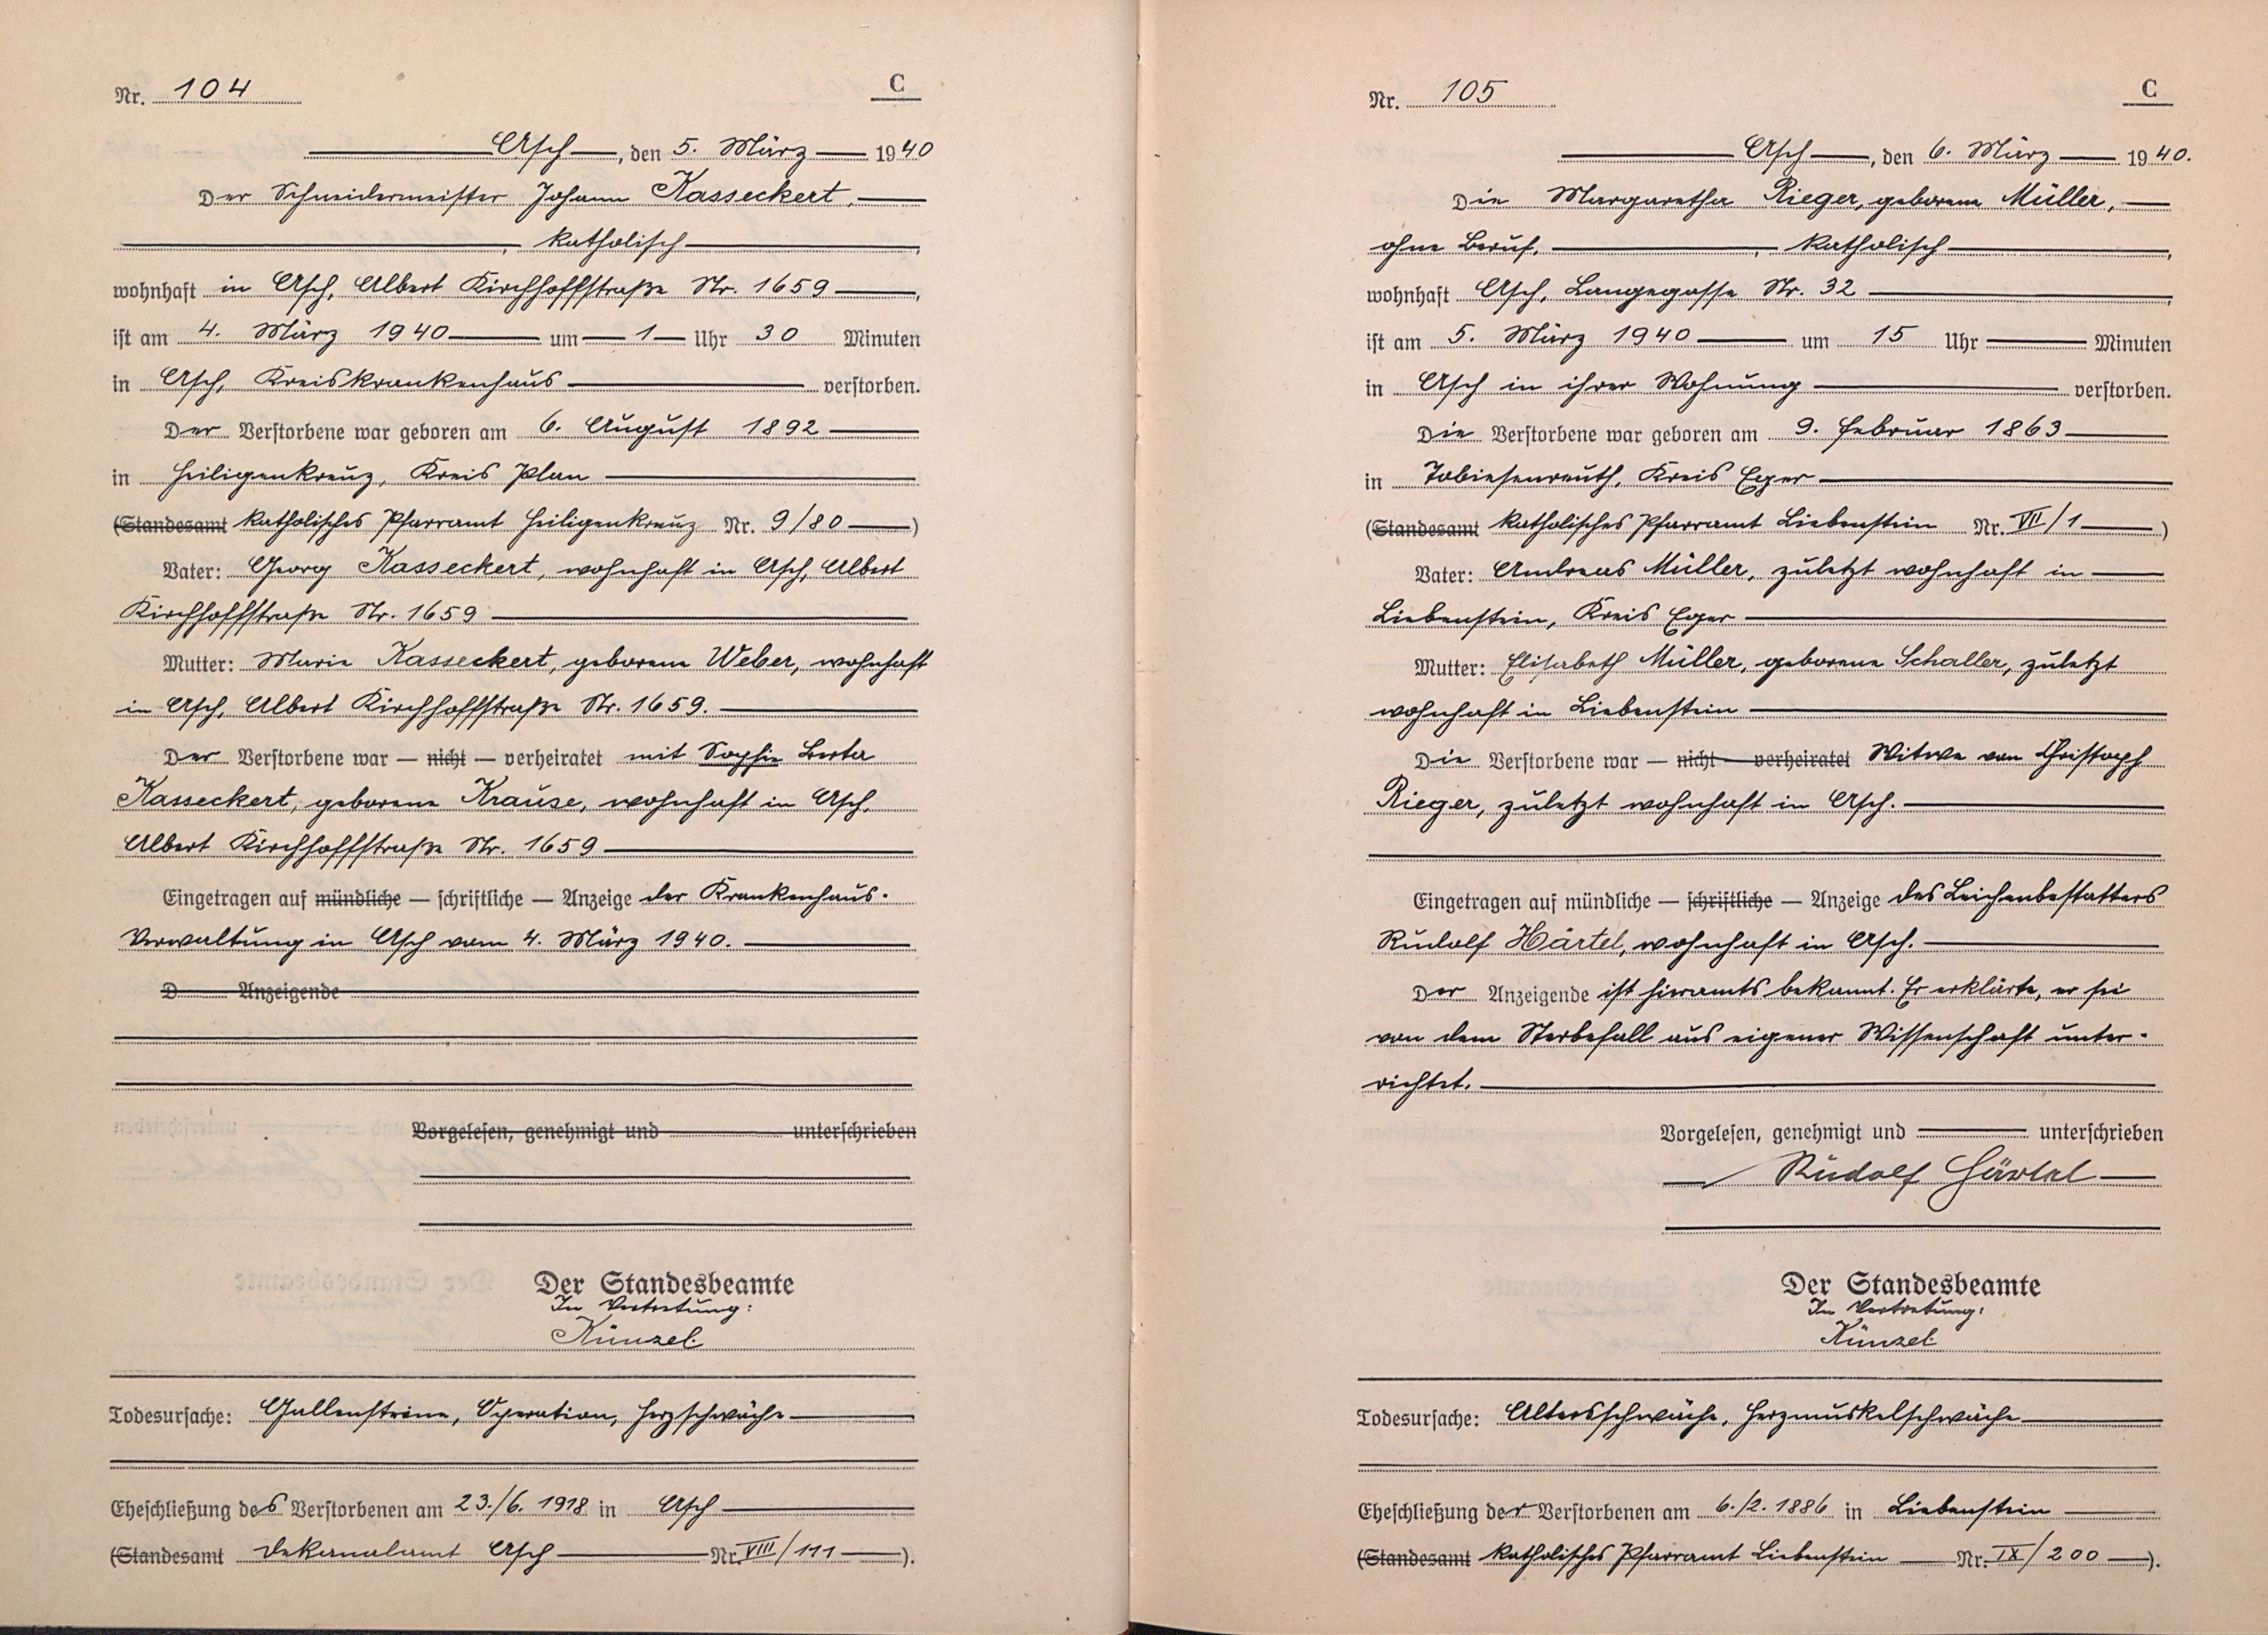 Nr. 104
C
Asch, den 5. März 1940
Der Schneidermeister Johann Kasseckert,
, katholisch,
wohnhaft in Asch, Albert Kirchhoffstraße Nr. 1659,
ist am 4. März 1940 um 1 Uhr 30 Minuten
in Asch, Kreiskrankenhaus verstorben.
Der Verstorbene war geboren am 6. August 1892
in Heiligenkreuz, Kreis Plan
(Standesamt katholisches Pfarramt Heiligenkreuz Nr. 9/80)
Vater: Georg Kasseckert, wohnhaft in Asch, Albert
Kirchhoffstraße Nr. 1659
Mutter: Marie Kasseckert, geborene Weber, wohnhaft
in Asch, Albert Kirchhoffstraße Nr. 1659.
Der Verstorbene war — nicht — verheiratet mit Sophie Berta
Kasseckert, geborene Krause, wohnhaft in Asch,
Albert Kirchhoffstraße Nr. 1659
Eingetragen auf mündliche — schriftliche — Anzeige der Krankenhaus-
Verwaltung in Asch vom 4. März 1940.
D Anzeigende
Vorgelesen, genehmigt und unterschrieben
Der Standesbeamte
In Vertretung:
Künzel
Todesursache: Gallensteine, Operation, Herzschwäche
Eheschließung des Verstorbenen am 23./6. 1918 in Asch
(Standesamt Dekanalamt Asch Nr. VIII/111).
Nr. 105
C
Asch, den 6. März 1940.
Die Margaretha Rieger, geborene Müller,
ohne Beruf, , katholisch,
wohnhaft Asch, Langegasse Nr. 32,
ist am 5. März 1940 um 15 Uhr Minuten
in Asch in ihrer Wohnung verstorben.
Die Verstorbene war geboren am 9. Februar 1863
in Tobiesenreuth, Kreis Eger
(Standesamt katholisches Pfarramt Liebenstein Nr. VII/1)
Vater: Andreas Müller, zuletzt wohnhaft in
Liebenstein, Kreis Eger
Mutter: Elisabeth Müller, geborene Schaller, zuletzt
wohnhaft in Liebenstein
Die Verstorbene war — nicht — verheiratet Witwe von Christoph
Rieger, zuletzt wohnhaft in Asch.
Eingetragen auf mündliche — schriftliche — Anzeige des Leichenbestatters
Rudolf Härtel, wohnhaft in Asch.
Der Anzeigende ist hieramts bekannt. Er erklärte, er sei
von dem Sterbefall aus eigener Wissenschaft unter-
richtet.
Vorgelesen, genehmigt und unterschrieben
Rudolf Härtel
Der Standesbeamte
In Vertretung:
Künzel
Todesursache: Altersschwäche, Herzmuskelschwäche
Eheschließung der Verstorbenen am 6./2. 1886 in Liebenstein
(Standesamt katholisches Pfarramt Liebenstein Nr. IX/200).